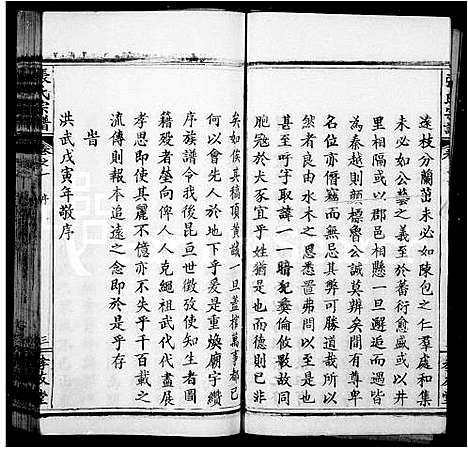 達枝分蘭茁未必如陳包之仁羣處和集
未必如公藝之義至於蕃衍愈盛或以井
里相隔或以郡邑相懸一旦邂逅而一得
為秦越則顔標魯公誠莫辨矣間嘗同其
名位亦僭竊而無其忌弗可勝道故所以
言者良由水木之思悉置弗問以至于
甚至呼字取諱一一暗犯彝倫攸斁故同
胞冠於犬豕宜乎姓猶是也而德則已非
矣如俟其槁項黃馘一旦蓋棺萬事都已
何以會先人於地下乎爰是重煥廟宇纘
序族譜令我後昆亘世倣效使知生者圖
籍歿者塋向俾人人克繩祖武代代畫展
孝思即使其麗不億亦不失乎千百載之
流傳則報本追遠之念即於是乎存
旹
洪武戊寅年敬序
張氏宗譜
卷之一
三
孝友堂